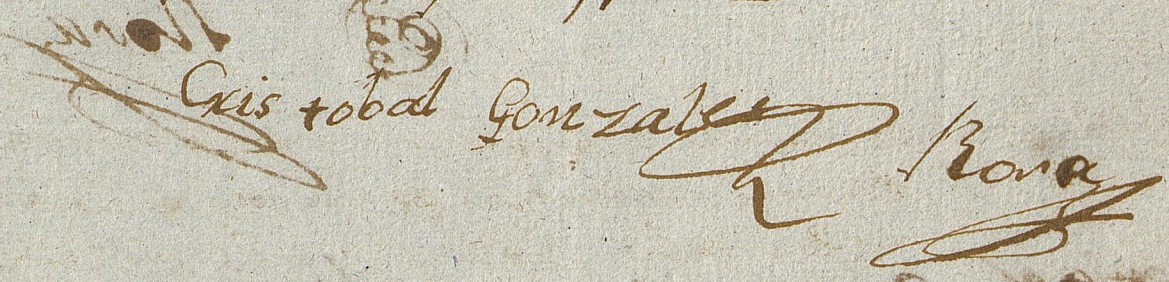 Cris tobal Gonzalez